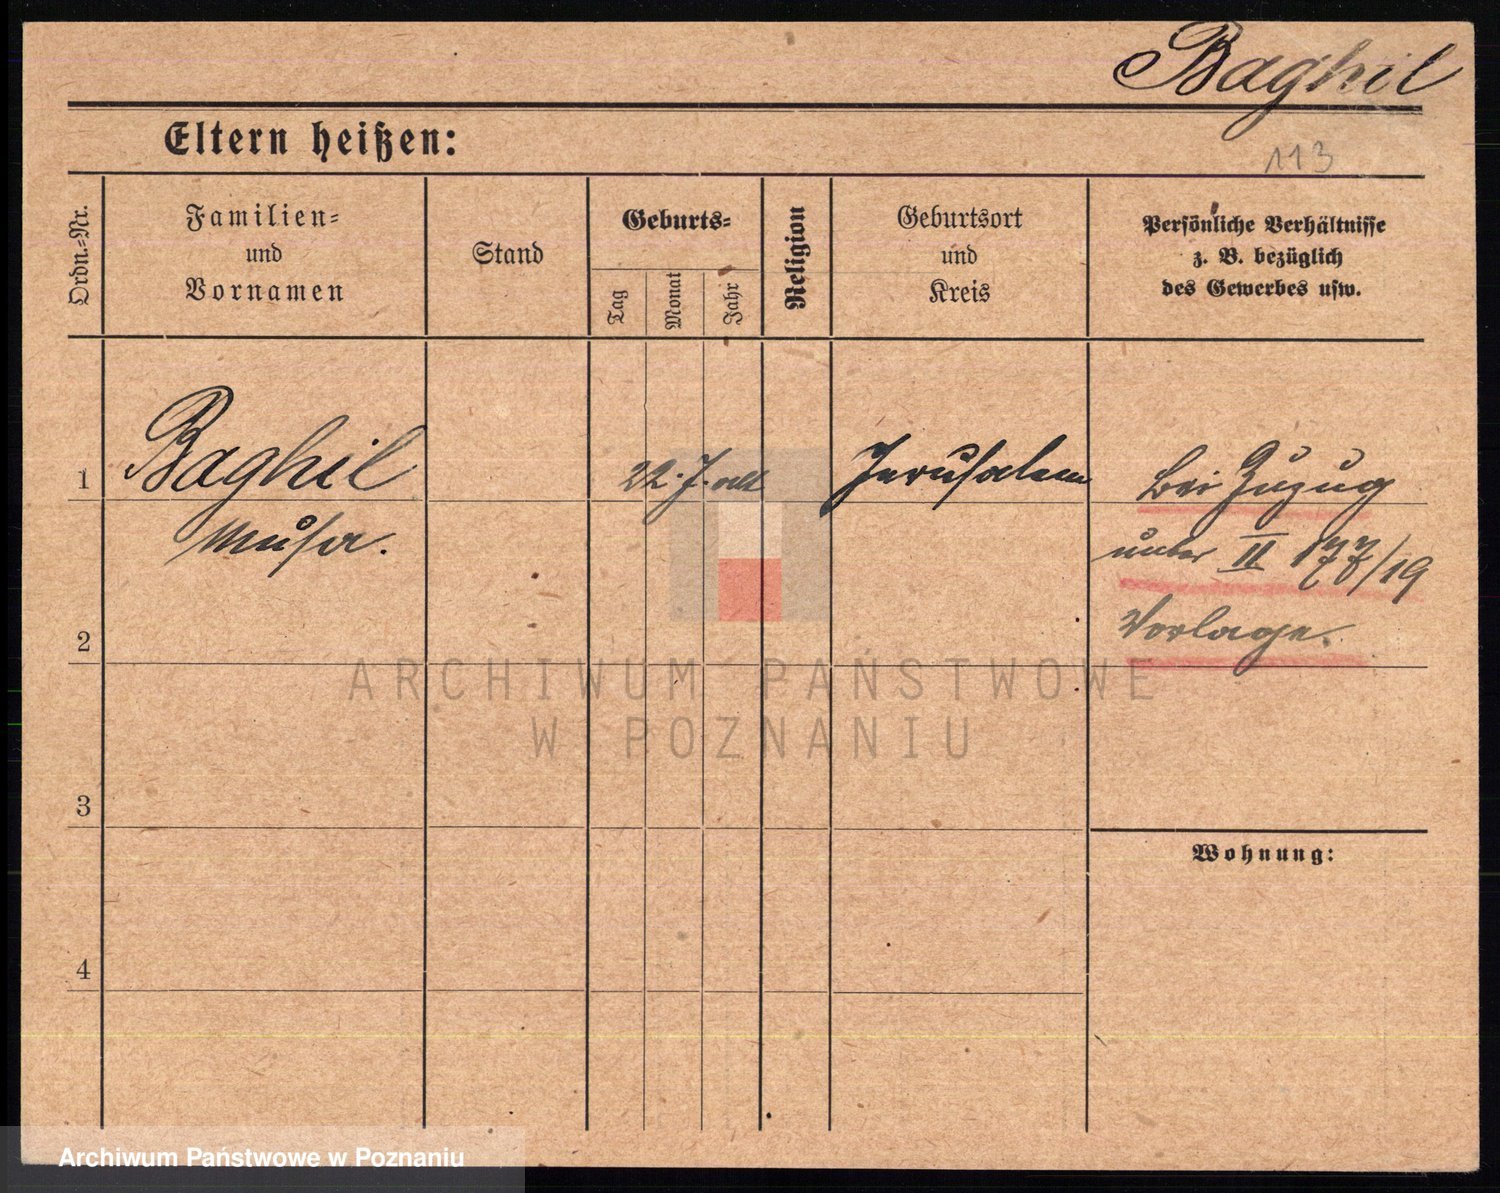 Baghil
Eltern heißen:
113
Ordn.=Nr.
Familien=
und
Vornamen
Stand
Geburts=
Tag
Monat
Jahr
Religion
Geburtsort
und
Kreis
Persönliche Verhältnisse
z. B. bezüglich
des Gewerbes usw.
1
Baghil
Musa.
22. J. alt
Jerusalem
Bei Zuzug
unter II 177/19
Vorlage.
2
3
4
Wohnung:
ARCHIWUM PAŃSTWOWE
W POZNANIU
Archiwum Państwowe w Poznaniu